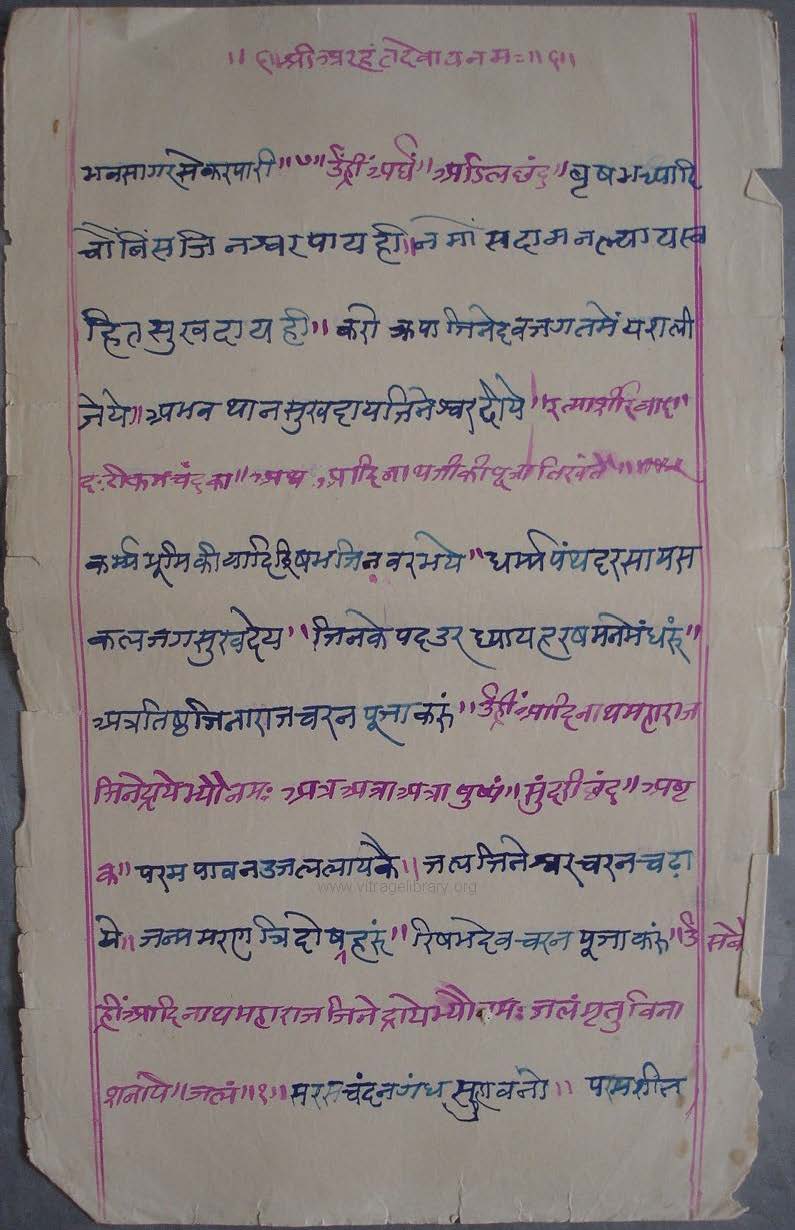 ॥ श्री अरहंतदेवायनमः॥
भवसागरसेकरपारी॥७॥ उँह्रीं अर्घं॥ अडिलछंद॥ बृषभआदि
चौंबिंसजिनश्वरपायही॥नमोंसदामनल्यायस्व
हितसुखदायही॥ करो क्रपाजिनेदवजगतमेंयशली
जेये॥अमनथानसुखदायजिनेश्वरदीये॥इत्याशीरवाद॥
दः टीकमचंदका॥ अथ आदिनाथजीकीपूजालिखंते॥
कर्म्मभूमिकीआदिरिषभजिनवरभये॥धर्म्मपंथदरसायस
कलजगसुखदेय॥जिनकेपदउरध्यायहरषमनमेंधरूं॥
अत्रतिष्ठजिनाराजचरनपूजाकरूं॥उँह्रींआदिनाथमहाराज
जिनेद्रायेभ्यौनमः अत्रअत्राअत्रापुष्पं॥सुंदरीछंद॥अष्ट
क॥परमपावनउजललायकै॥जलजिनेश्वरचरनचढ़ा
ये॥जन्ममरणत्रिदोषहरूं॥रिषभदेवचरनपूजाकरूं॥उँ
ह्रींआदिनाथमहाराजजिनेद्रायेभ्यौनमः जलंमृतुविना
शनाये॥जलं॥१॥सरसचंदनगंधसुहावनो॥परमशीत
www.vitragelibrary.org